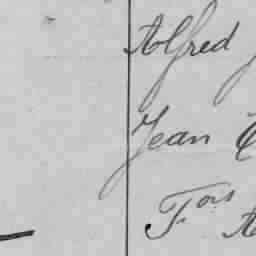 Alfred
Jean
Fois